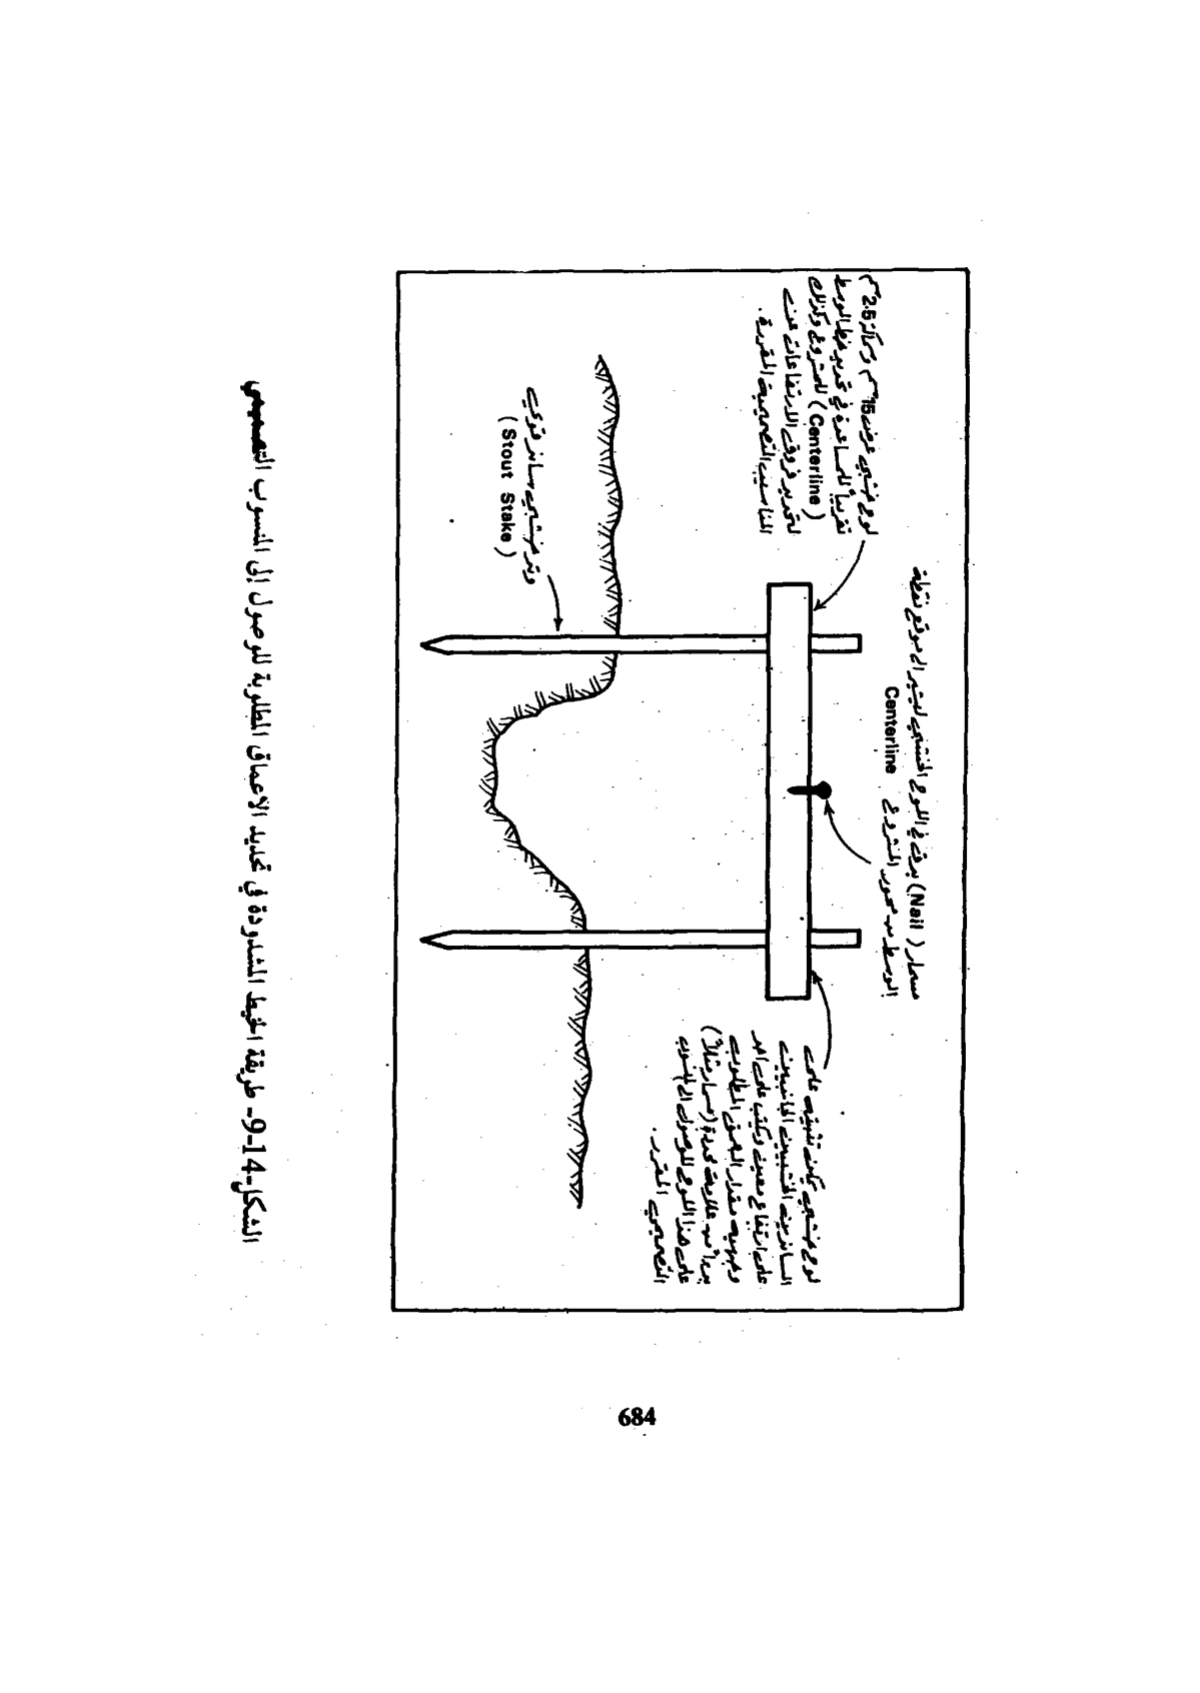 مسمار (Nail) يدق في اللوح الخشبي ليشير الى موقع نقطة
الوسط من محور المشروع Centerline
لوح خشبي عرض 15 سم وسمك 2.5 سم
تقريباً للمساعدة في تحديد خط الوسط
(Centerline) للمشروع وكذلك
لتحديد فروق الارتفاعات عن
المناسيب التصميمية المقررة.
وتد خشبي ساند قوي
(Stout Stake)
لوح خشبي يمكن تثبيته على
الساندين الخشبيين الجانبيين
على ارتفاع معين ويكتب على احد
وجهيه مقدار العمق المطلوب
بدءاً من علامة محددة (مسمار مثلاً)
على هذا اللوح للوصول الى المنسوب
التصميمي المقرر.
الشكل-14-9- طريقة الخيط المشدودة في تحديد الأعماق المطلوبة للوصول إلى المنسوب التصميمي
684